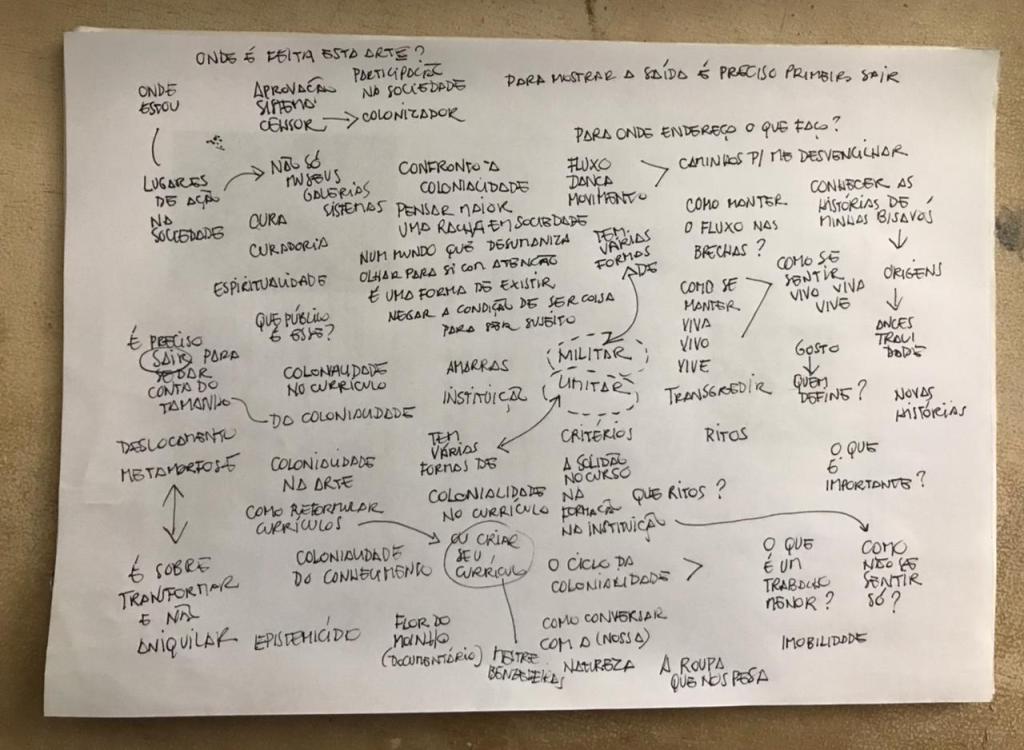 ONDE É FEITA ESTA ARTE?
ONDE
ESTOU
APROVAÇÃO
SISTEMA
CENSOR
PARTICIPAÇÃO
NA SOCIEDADE
COLONIZADOR
PARA MOSTRAR A SAÍDA É PRECISO PRIMEIRO SAIR
PARA ONDE ENDEREÇO O QUE FAÇO?
LUGARES
DE AÇÃO
NA
SOCIEDADE
NÃO SÓ
MUSEUS
GALERIAS
SISTEMAS
CURA
CURADORIA
ESPIRITUALIDADE
CONFRONTO A
COLONIALIDADE
PENSAR MAIOR
UMA RACHA EM SOCIEDADE
NUM MUNDO QUE DESUMANIZA
OLHAR PARA SI COM ATENÇÃO
É UMA FORMA DE EXISTIR
NEGAR A CONDIÇÃO DE SER COISA
PARA SER SUJEITO
FLUXO
DANÇA
MOVIMENTO
CAMINHOS P/ ME DESVENCILHAR
TEM
VÁRIAS
FORMAS
DE
COMO MONTER
O FLUXO NAS
BRECHAS?
CONHECER AS
HISTÓRIAS DE
MINHAS BISAVÓS
ORIGENS
ANCES
TRALI
DADE
COMO SE
MANTER
VIVA
VIVO
VIVE
COMO SE
SENTIR
VIVO VIVA
VIVE
QUE PÚBLICO
É ESSE?
É PRECISO
SAIR PARA
SE DAR
CONTA DO
TAMANHO
DA COLONIALIDADE
COLONIALIDADE
NO CURRÍCULO
AMARRAS
INSTITUIÇÃO
MILITAR
LIMITAR
TRANSGREDIR
GOSTO
QUEM
DEFINE?
NOVAS
HISTÓRIAS
DESLOCAMENTO
METAMORFOSE
COLONIALIDADE
NA ARTE
TEM
VÁRIAS
FORMAS DE
CRITÉRIOS
RITOS
O QUE
É
IMPORTANTE?
COMO REFORMULAR
CURRÍCULOS
COLONIALIDADE
NO CURRÍCULO
A SOLIDÃO
NO CURSO
NA
FORMAÇÃO
NA INSTITUIÇÃO
QUE RITOS?
OU CRIAR
SEU
CURRÍCULO
É SOBRE
TRANFORMAR
E NÃO
ANIQUILAR
COLONIALIDADE
DO CONHECIMENTO
O CICLO DA
COLONIALIDADE
O QUE
É UM
TRABALHO
MENOR?
COMO
NÃO SE
SENTIR
SÓ?
EPISTEMICÍDIO
FLOR DO
MOINHO
(DOCUMENTÁRIO)
MESTRE
BENZEDEIRAS
COMO CONVERSAR
COM A (NOSSA)
NATUREZA
A ROUPA
QUE NOS PESA
IMOBILIDADE